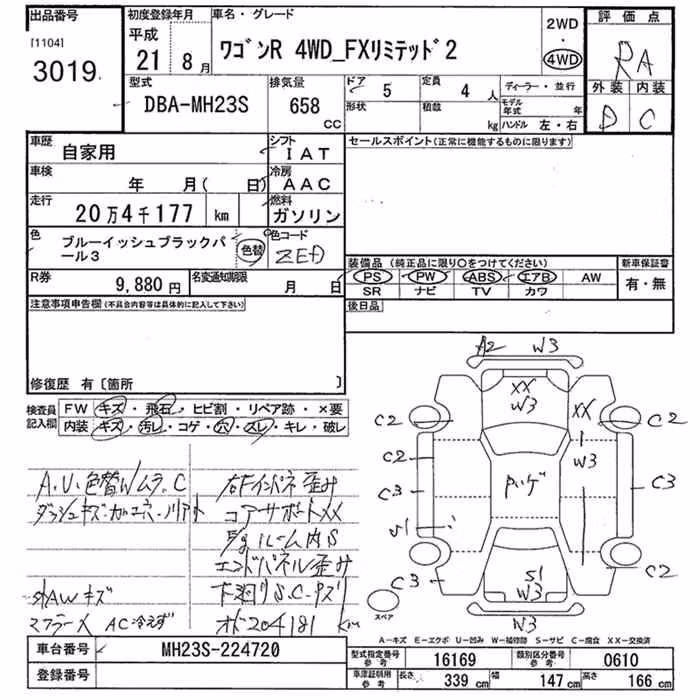 出品番号
[1104]
3019
初度登録年月
平成
21年 8月
車名・グレード
ワゴンR 4WD_FXリミテッド2
2WD
・
4WD
評価点
RA
外装 内装
D C
型式
DBA-MH23S
排気量
658
CC
ドア
5
形状
定員
4人
積数
kg
ディーラー・並行
モデル年式 年
ハンドル 左・右
車歴
自家用
シフト
IAT
車検
年 月( 日)
冷房
AAC
走行
20万4千177 km
燃料
ガソリン
色
ブルーイッシュブラックパール3
色替
色コード
ZED
R券
9,880円
名変通知期限
月 日
セールスポイント(正常に機能するものに限ります)
装備品(純正品に限り○をつけてください)
新車保証書
PS PW ABS エアB AW
SR ナビ TV カワ
有・無
後日品
注意事項申告欄(不具合内容等は具体的に記入して下さい)
修復歴 有〔箇所 〕
検査員記入欄
FW キズ・飛石・ヒビ割・リペア跡・×要
内装 キズ・汚レ・コゲ・穴・スレ・キレ・破レ
A.U.色替Wムラ.C
右Fインパネ歪み
コアサポートXX
ルーム内S
エンドパネル歪み
外AWキズ
下廻りS.C.キズ
マフラーX AC冷えず
オド204181km
A2 W3
XX
W3
C2
XX
C2
C2
W3
C3
C3
S1
C3
S1
W3
C2
スペア
A-キズ E-エクボ U-凹み W-補修跡 S-サビ C-腐食 XX-交換済
車台番号
MH23S-224720
登録番号
型式指定番号
参考
16169
類別区分番号
参考
0610
車庫証明用
参考
長さ 339cm 幅 147cm 高さ 166cm